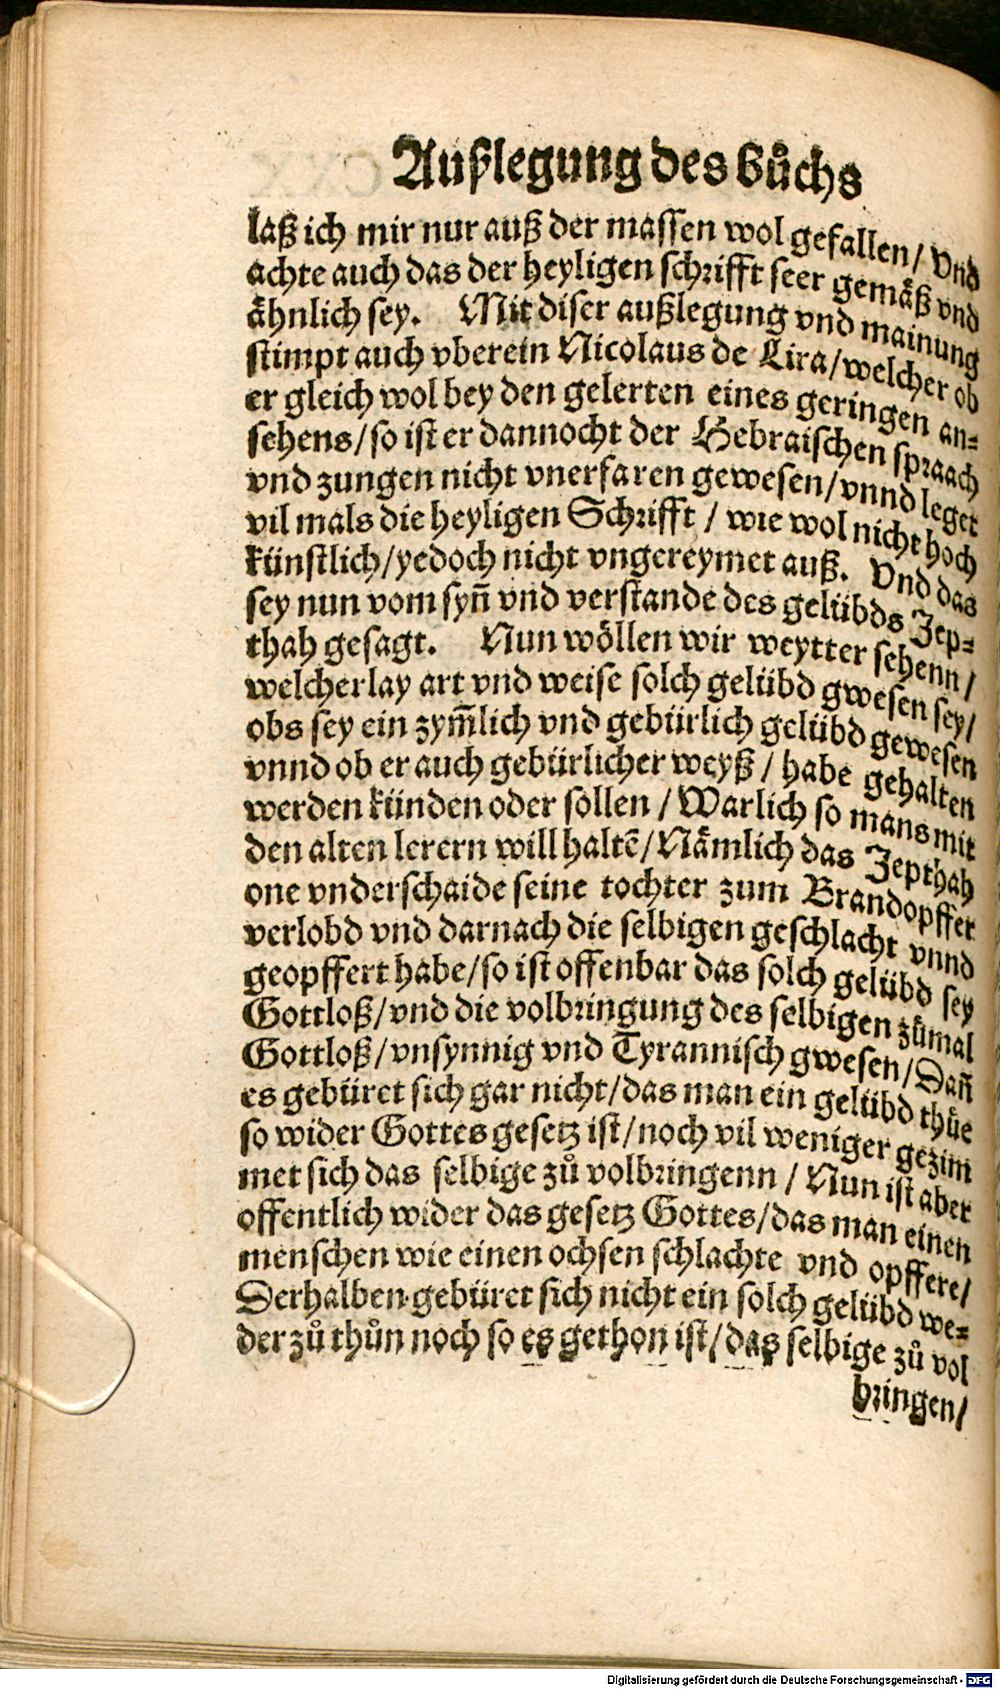 Außlegung des Bůchs
laß ich mir nur auß der massen wol gefallen / Vnd
achte auch das der heyligen schrifft seer gemäß vnd
ähnlich sey. Mit diser außlegung vnd mainung
stimpt auch vberein Nicolaus de Lira / welcher ob
er gleich wol bey den gelerten eines geringen an⸗
sehens / so ist er dannocht der Hebraischen spraach
vnd zungen nicht vnerfaren gewesen / vnnd leget
vil mals die heyligen Schrifft / wie wol nicht hoch
künstlich / yedoch nicht vngereymet auß. Vnd das
sey nun vom syñ vnd verstande des gelübds Jep⸗
thah gesagt. Nun wöllen wir weytter sehenn /
welcherlay art vnd weise solch gelübd gwesen sey /
obs sey ein zym̃lich vnd gebürlich gelübd gewesen
vnnd ob er auch gebürlicher weyß / habe gehalten
werden künden oder sollen / Warlich so mans mit
den alten lerern will haltẽ / Nämlich das Jepthah
one vnderschaide seine tochter zum Brandopffer
verlobd vnd darnach die selbigen geschlacht vnnd
geopffert habe / so ist offenbar das solch gelübd sey
Gottloß / vnd die volbringung des selbigen zůmal
Gottloß / vnsynnig vnd Tyrannisch gwesen / Dañ
es gebüret sich gar nicht / das man ein gelübd thüe
so wider Gottes gesetz ist / noch vil weniger gezim
met sich das selbige zů volbringenn / Nun ist aber
offentlich wider das gesetz Gottes / das man einen
menschen wie einen ochsen schlachte vnd opffere /
Derhalben gebüret sich nicht ein solch gelübd we⸗
der zů thůn noch so es gethon ist / das selbige zů vol
bringen /
Digitalisierung gefördert durch die Deutsche Forschungsgemeinschaft - DFG